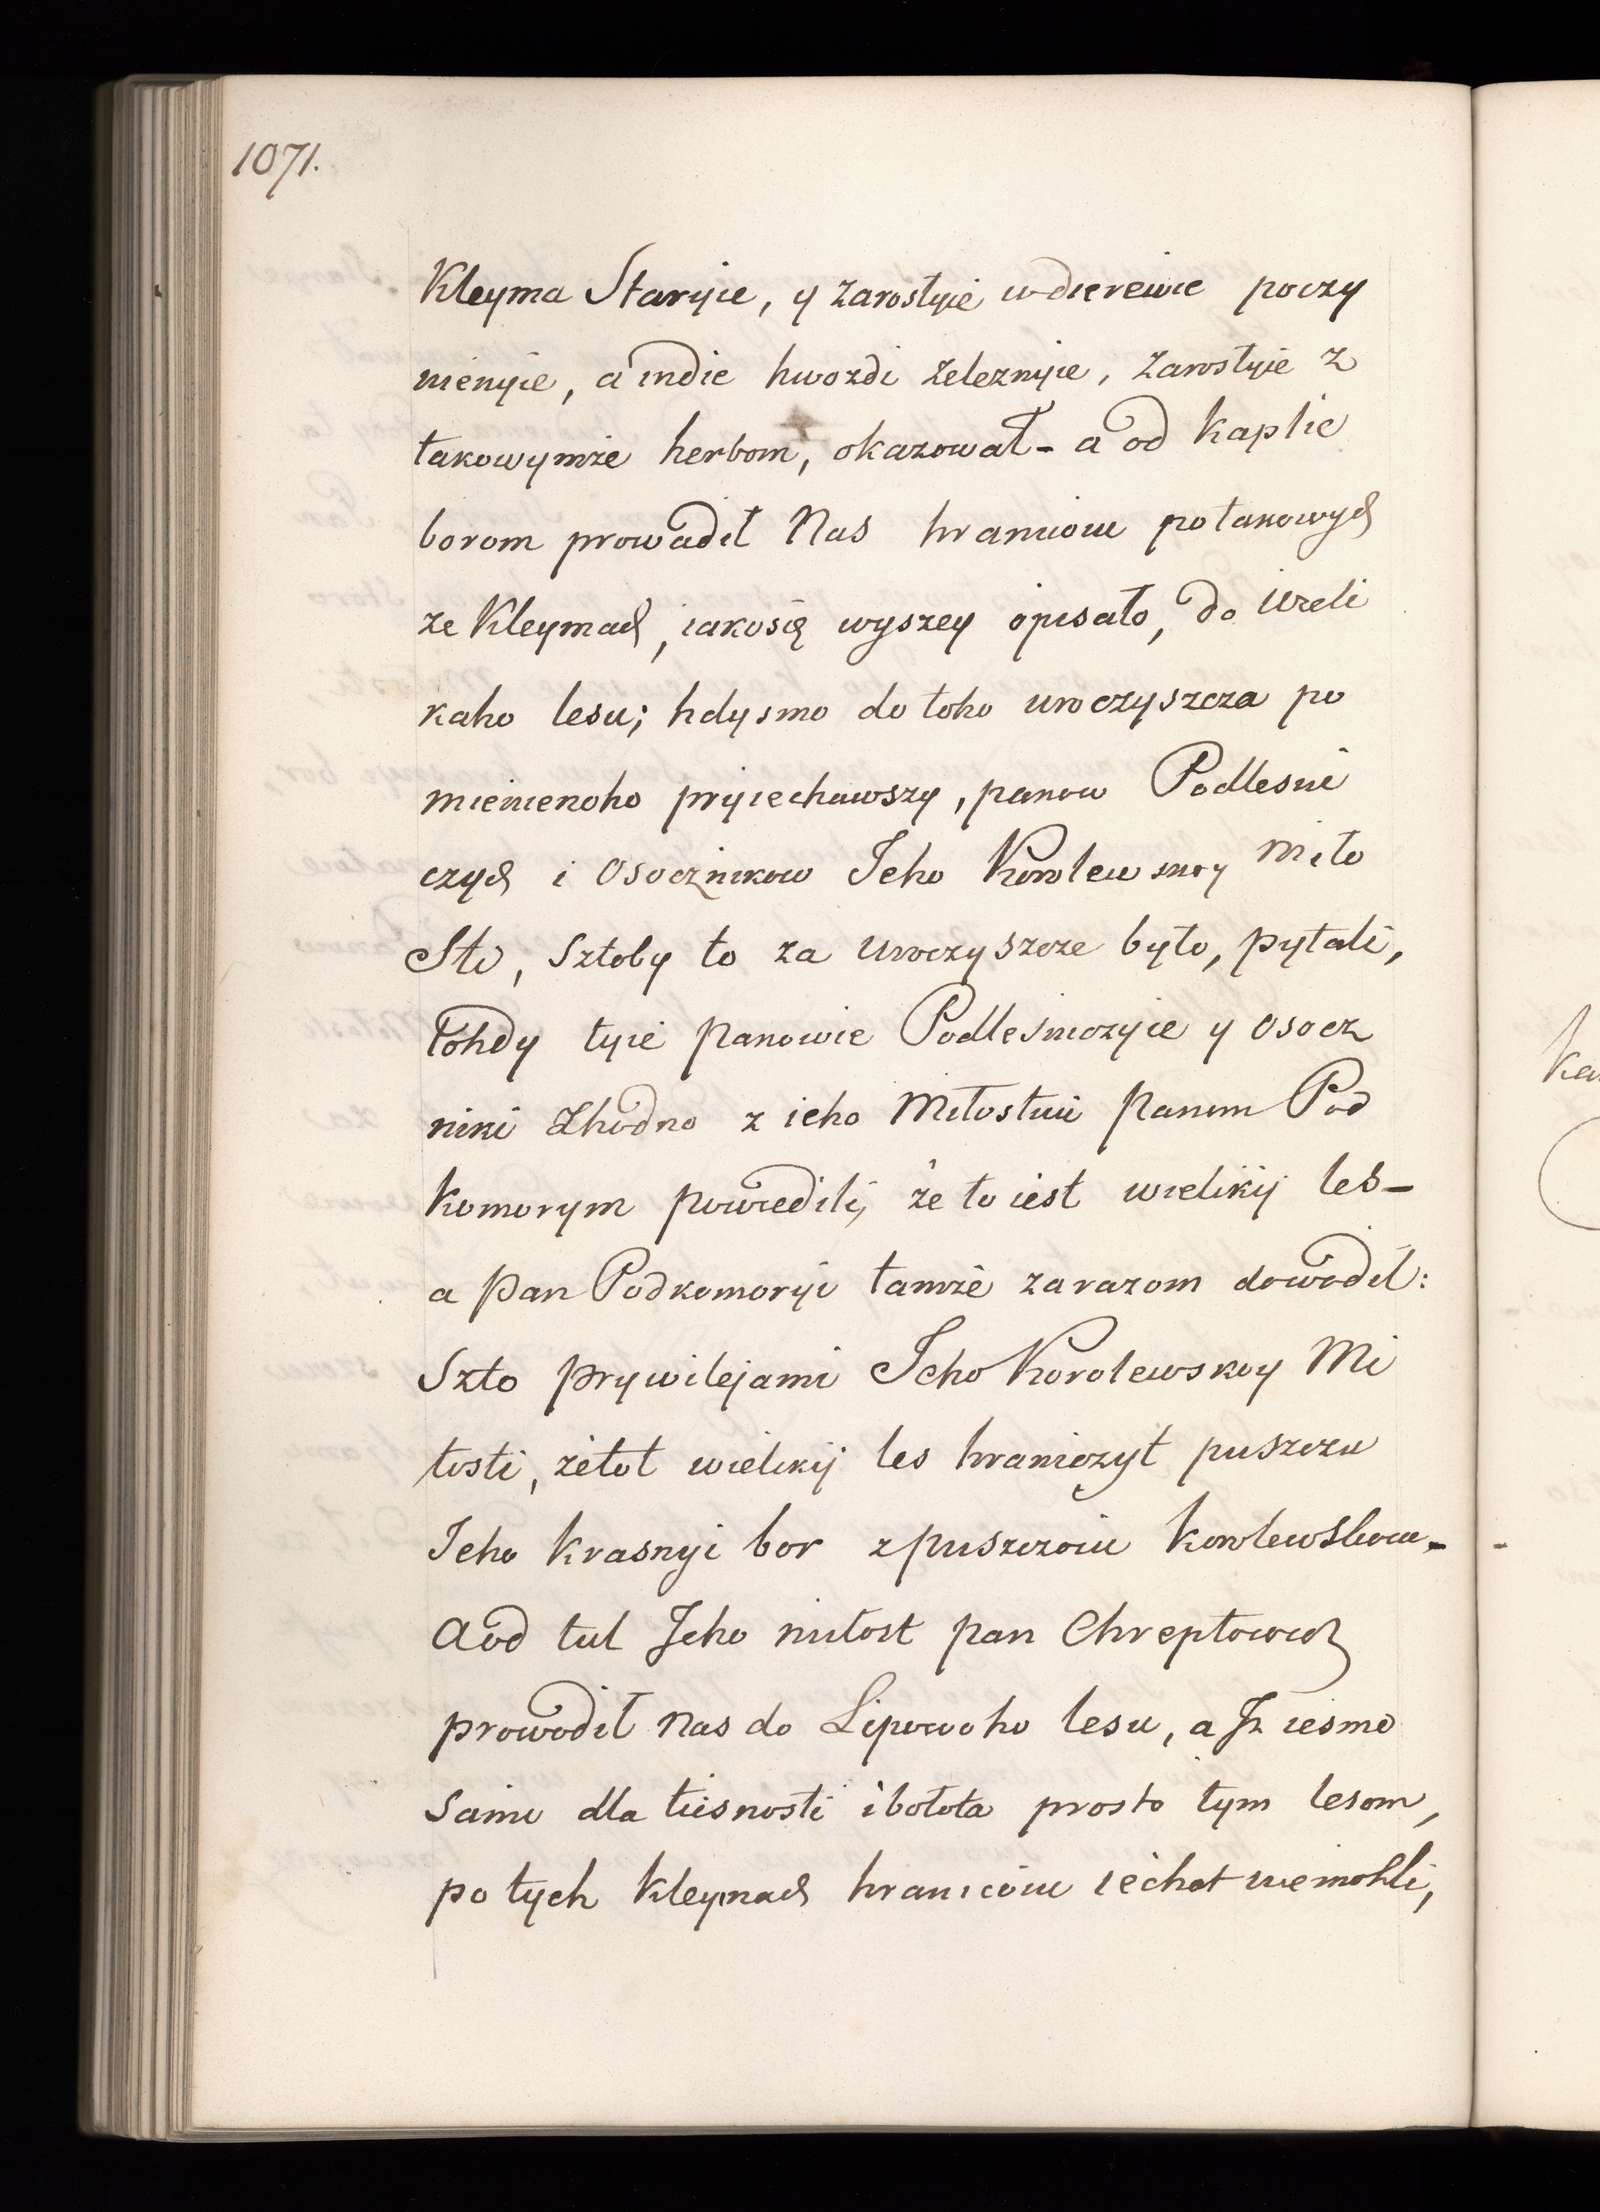 1071.
Kleyma Staryie, y zarostyie wdierewie poczy
nienyie, a indie hwozdi zeleznyie, zarostyie z
takowymże herbom, okazował - a od kaplic
borom prowadił Nas hraniciow po takowych
że Kleymach, iakosię wyszey opisało, do Weli
kaho lesu; hdysmo do toho uroczyszcza po
mienienoho pryiechawszy, panow Podlesni
czych i Osocznikow Jeho Korolewskoy Miło
Sti, Sztoby to za uroczyszcze było, pytali,
tohdy tyie Panowie Podlesniczyie y osocz
niki zhodno z ieho Miłostiu Panom Pod
Komorym powiedili, że to iest wielikij les -
a Pan Podkomoryi tamże zarazom dowodił:
Szto prywilejami Jeho Korolewskoy Mi
łosti, żetot wielikij les hraniczył puszczu
Jeho Krasnyi bor z puszczoiu Korolewskoiu -
A od tul Jeho miłost pan Chreptowicz
prowodił Nas do Lipowoho lesu, a Jż iesmo
Sami dla tiesnosti i bołota prosto tym lesom,
po tych Kleymach hraniciow iechat niemohli,
Ka